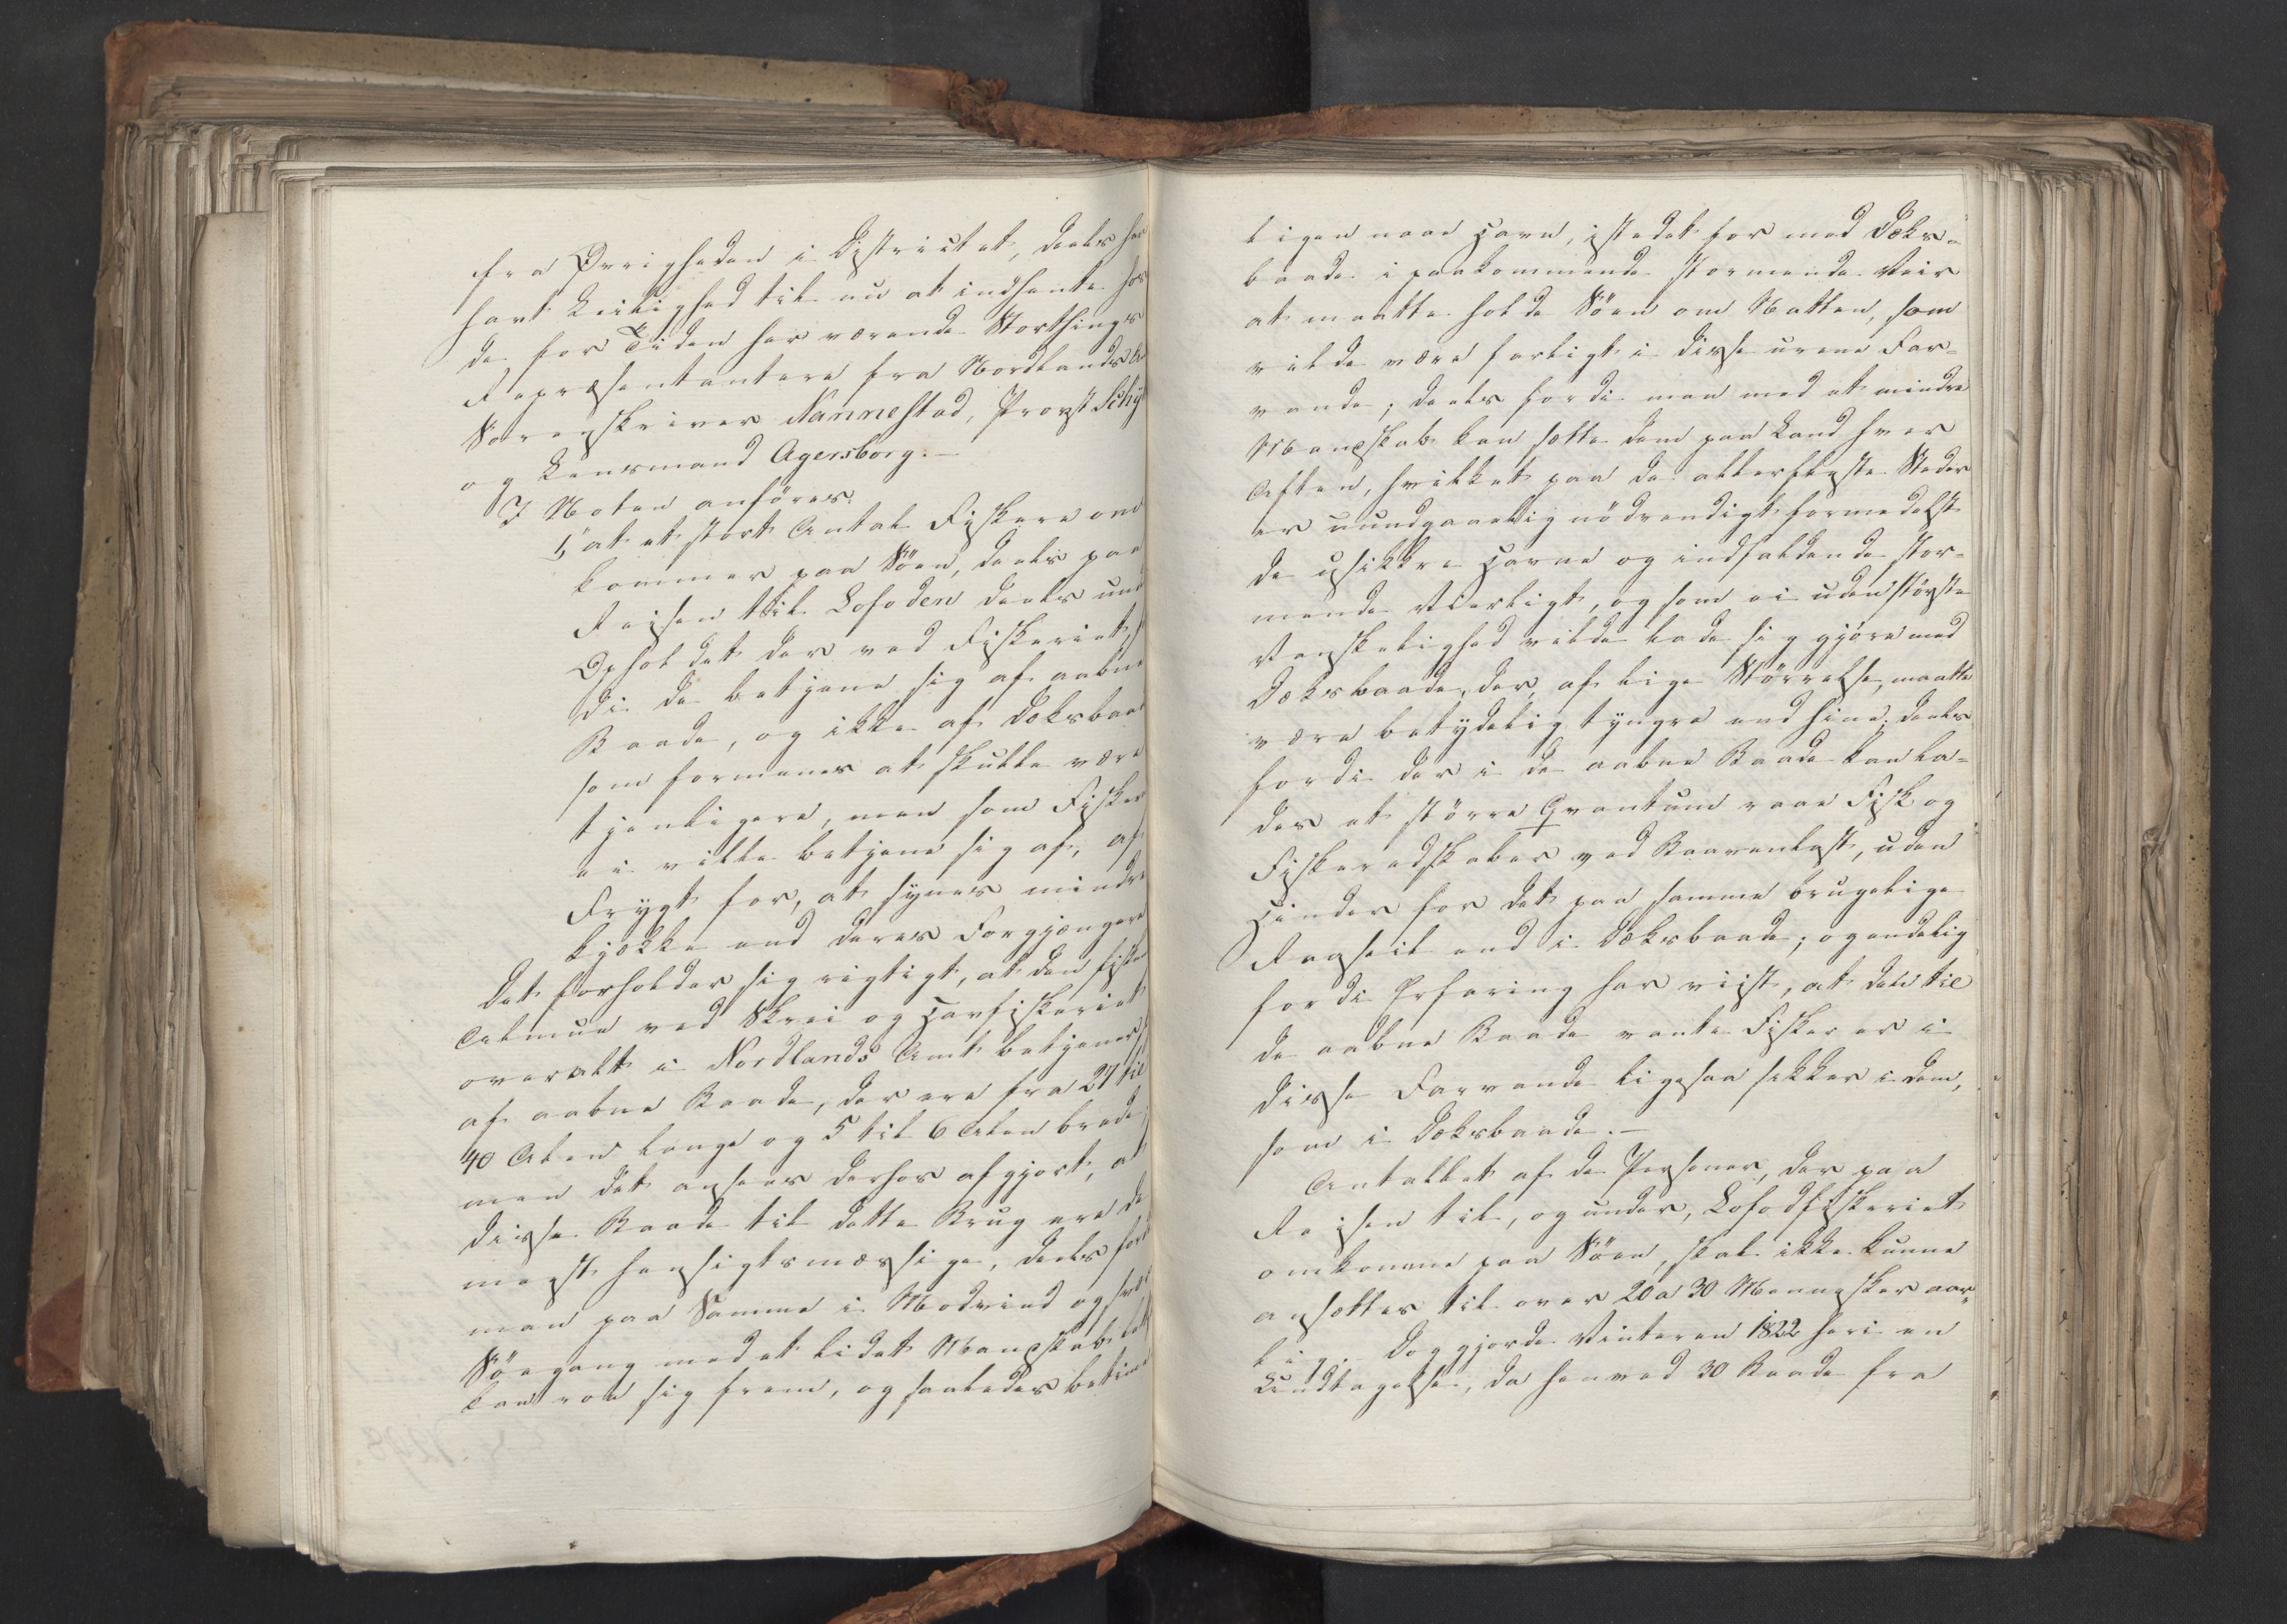 fra Øvrigheden i Districtet, deels har
havt Leilighed til nu at indhente hos
de for Tiden her værende Storthings
Repræsentantere fra Nordlands A
Sorenskriver Nannestad, Provst Schy
og Lensmand Agersborg. —
I Noten anføres:
1, at et stort Antal Fiskere om
kommer paa Söen, deels paa
Reisen til Lofoden deels und
Opholdet der ved Fiskeriet,
di de betjene sig af aabne
Baade, og ikke af Dæksbaad
som formenes at skulle være
tjenligere, men som Fisker
ei ville betjene sig af, af
Frygt for, at synes mindre
kjække end deres Forgjængere
Det forholder sig rigtigt, at den fiske
Almue ved Skrei og Havfiskeriet
overalt i Nordlands Amt betjener
af aabne Baade, der ere fra 27 til
40 Alen lange og 5 til 6 Alen brede;
men det ansees derhos afgjort, at
disse Baade til dette Brug ere de
meest hensigtsmæssige, deels ford
man paa Samme i Modvind og svær
Söegang med et lidet Mandskab lett
kan roe sig frem, og saaledes betime
ligen naae Havn, istedet for med Dæks-
baade i paakommende stormende Veir
at maatte holde Söen om Natten, som
vilde være farligt i disse urene Far-
vande; deels fordi man med et mindre
Mandskab kan sætte dem paa Land hver
Aften, hvilket paa de allerfleste Steder
er uundgaaelig nödvendigt formedelst
de usikkre Havne og indfaldende stor-
mende Veirligt, og som ei uden störste
Vanskelighed vilde lade sig gjöre med
Dæksbaade, der, af lige Störrelse, maatte
være betydelig tyngre end hine; deels
fordi der i de aabne Baade kan la-
des et större Qvantum raae Fisk og
Fiskeredskaber ved Raavenlast, uden
Hinder for det paa samme brugelige
Raaseil end i Dæksbaade; og endelig
fordi Erfaring har viist, at den til
de aabne Baade vante Fisker er i
disse Farvande ligesaa sikker i dem,
som i Dæksbaade. —
Antallet af de Personer, der paa
Reisen til, og under, Lofodfiskeriet
omkomme paa Söen, skal ikke kunne
ansættes til over 20 a 30 Mennesker aar-
lig. Dog gjorde Vinteren 1822 heri en
Undtagelse, da henved 30 Baade fra